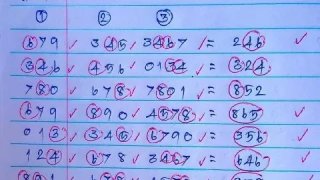 ① ② ③
679 345 3467 = 246
346 456 0134 = 324
780 678 7801 = 852
679 890 4578 = 865
013 345 6790 = 356
124 678 3467 = 646